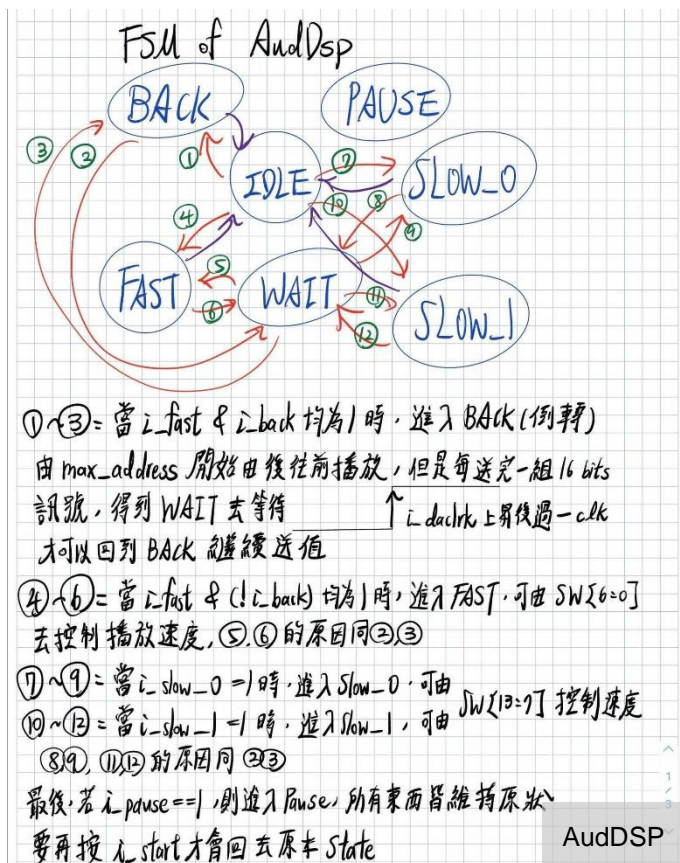 FSM of AudDsp
BACK
PAUSE
③
②
①
IDLE
⑦
SLOW_0
⑩
⑧
⑨
④
FAST
⑤
WAIT
⑥
⑪
⑫
SLOW_1
①~③= 當 i_fast & i_back 均為1時,進入 BACK(倒轉)
由 max_address 開始由後往前播放,但是每送完一組 16 bits
訊號,得到 WAIT 去等待
i_daclrk 上昇後過一 clk
才可以回到 BACK 繼續送值
④~⑥= 當 i_fast & (!i_back) 均為1時,進入 FAST,可由 SW[6=0]
去控制播放速度,⑤,⑥的原因同②,③
⑦~⑨= 當 i_slow_0 =1時,進入 Slow_0,可由
SW[13=7] 控制速度
⑩~⑫= 當 i_slow_1 =1時,進入 Slow_1,可由
⑧⑨,⑪⑫的原因同②③
最後,若 i_pause==1,則進入 Pause,所有東西皆維持原狀
要再按 i_start 才會回去原本 State
1
/
3
AudDSP